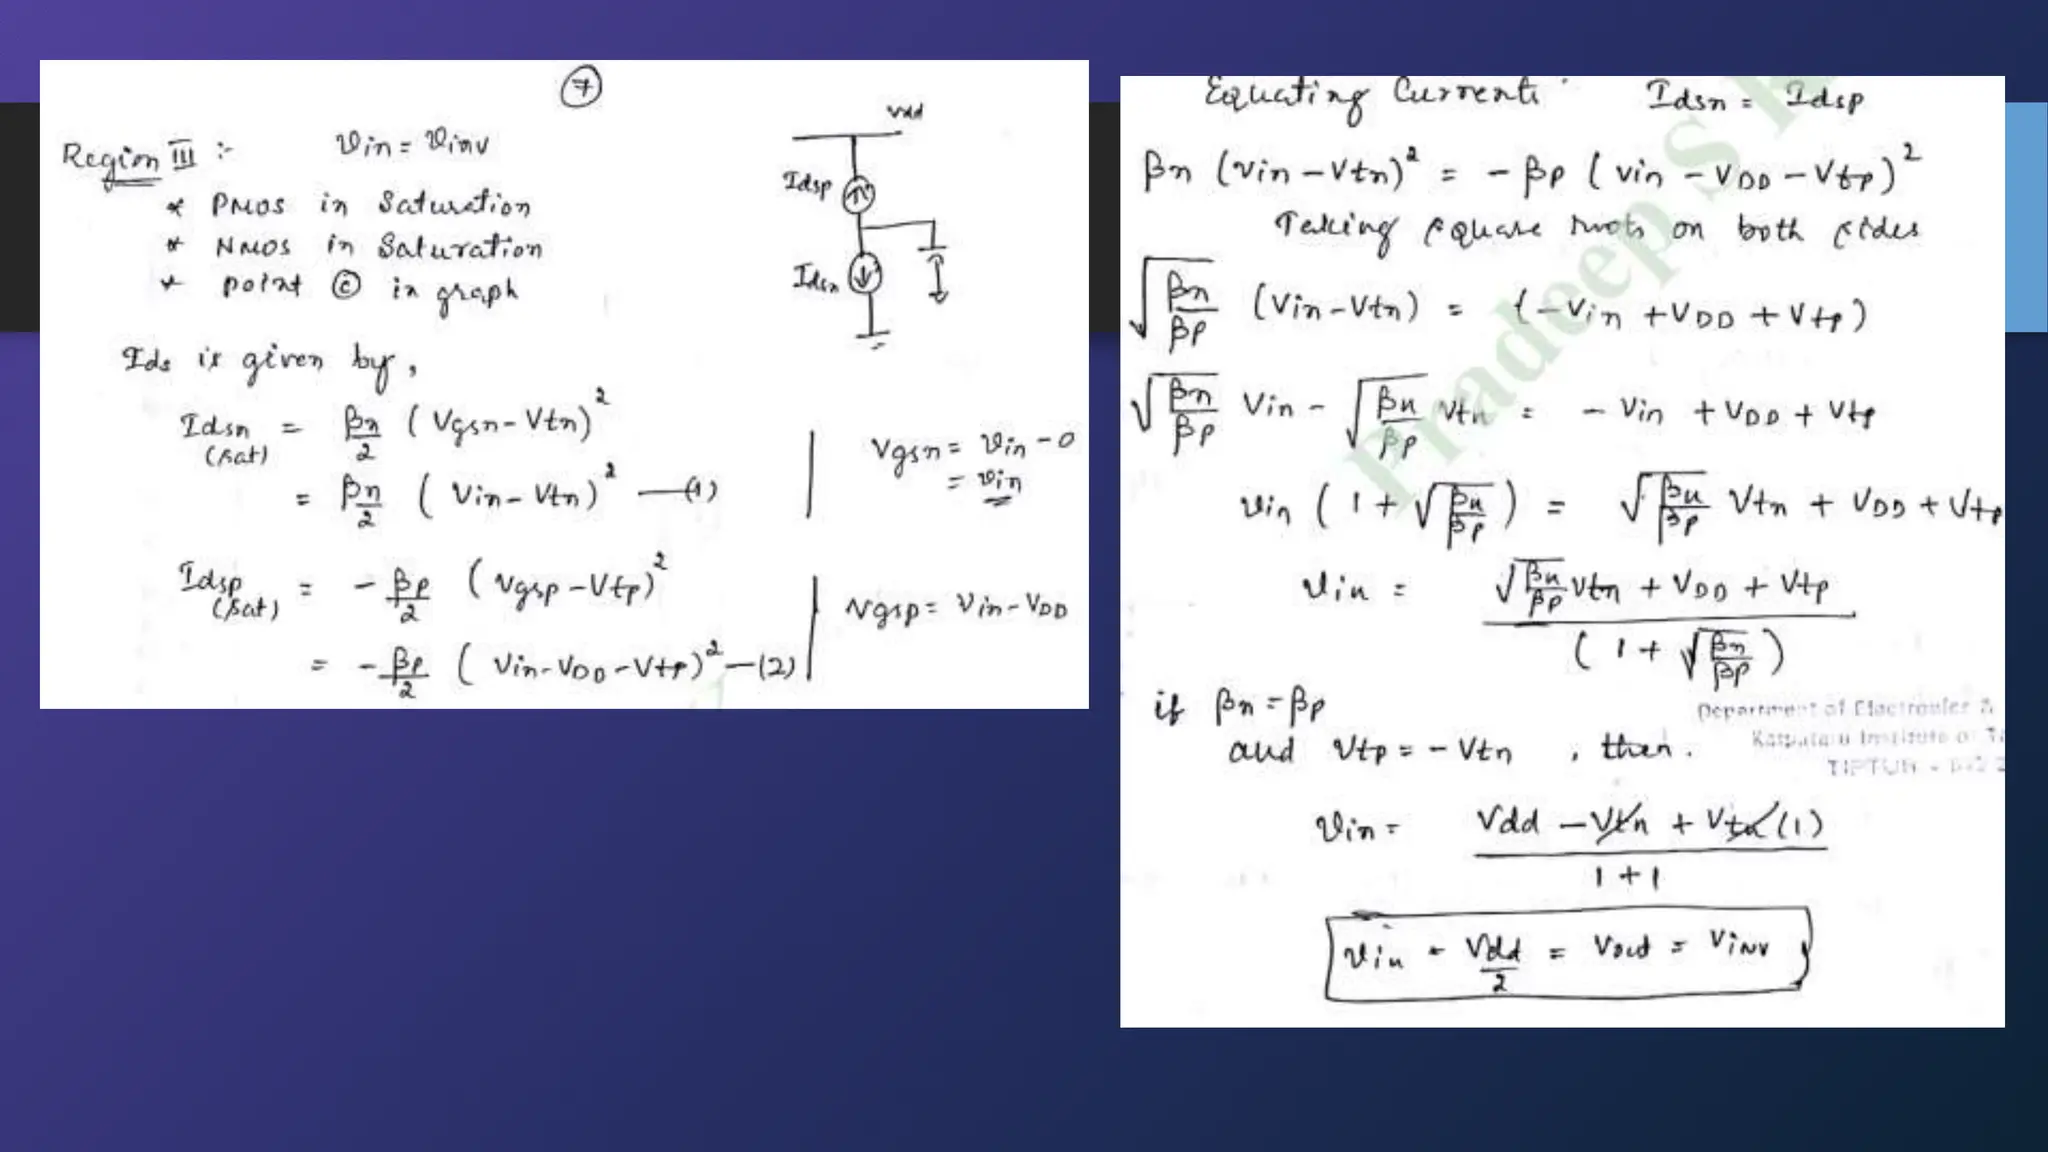 7
Region III :- Vin = Vinv
* PMOS in Saturation
* NMOS in Saturation
* point © in graph
Vdd
Idsp
Idsn
Ids is given by,
Idsn (sat) = βn/2 (Vgsn - Vtn)²
= βn/2 (Vin - Vtn)² —(1)
Vgsn = Vin - 0
= Vin
Idsp (sat) = - βp/2 (Vgsp - Vtp)²
= - βp/2 (Vin - VDD - Vtp)² —(2)
Vgsp = Vin - VDD
Equating Currents Idsn = Idsp
βn (Vin - Vtn)² = - βp (Vin - VDD - Vtp)²
Taking square roots on both sides
√(βn/βp) (Vin - Vtn) = (-Vin + VDD + Vtp)
√(βn/βp) Vin - √(βn/βp) Vtn = - Vin + VDD + Vtp
Vin (1 + √(βn/βp)) = √(βn/βp) Vtn + VDD + Vtp
Vin = √(βn/βp) Vtn + VDD + Vtp / (1 + √(βn/βp))
if βn = βp
and Vtp = - Vtn , then.
Vin = Vdd - Vtn + Vtn (1) / 1 + 1
Vin = Vdd/2 = Vout = Vinv
Pradeep S
Department of Electronics &